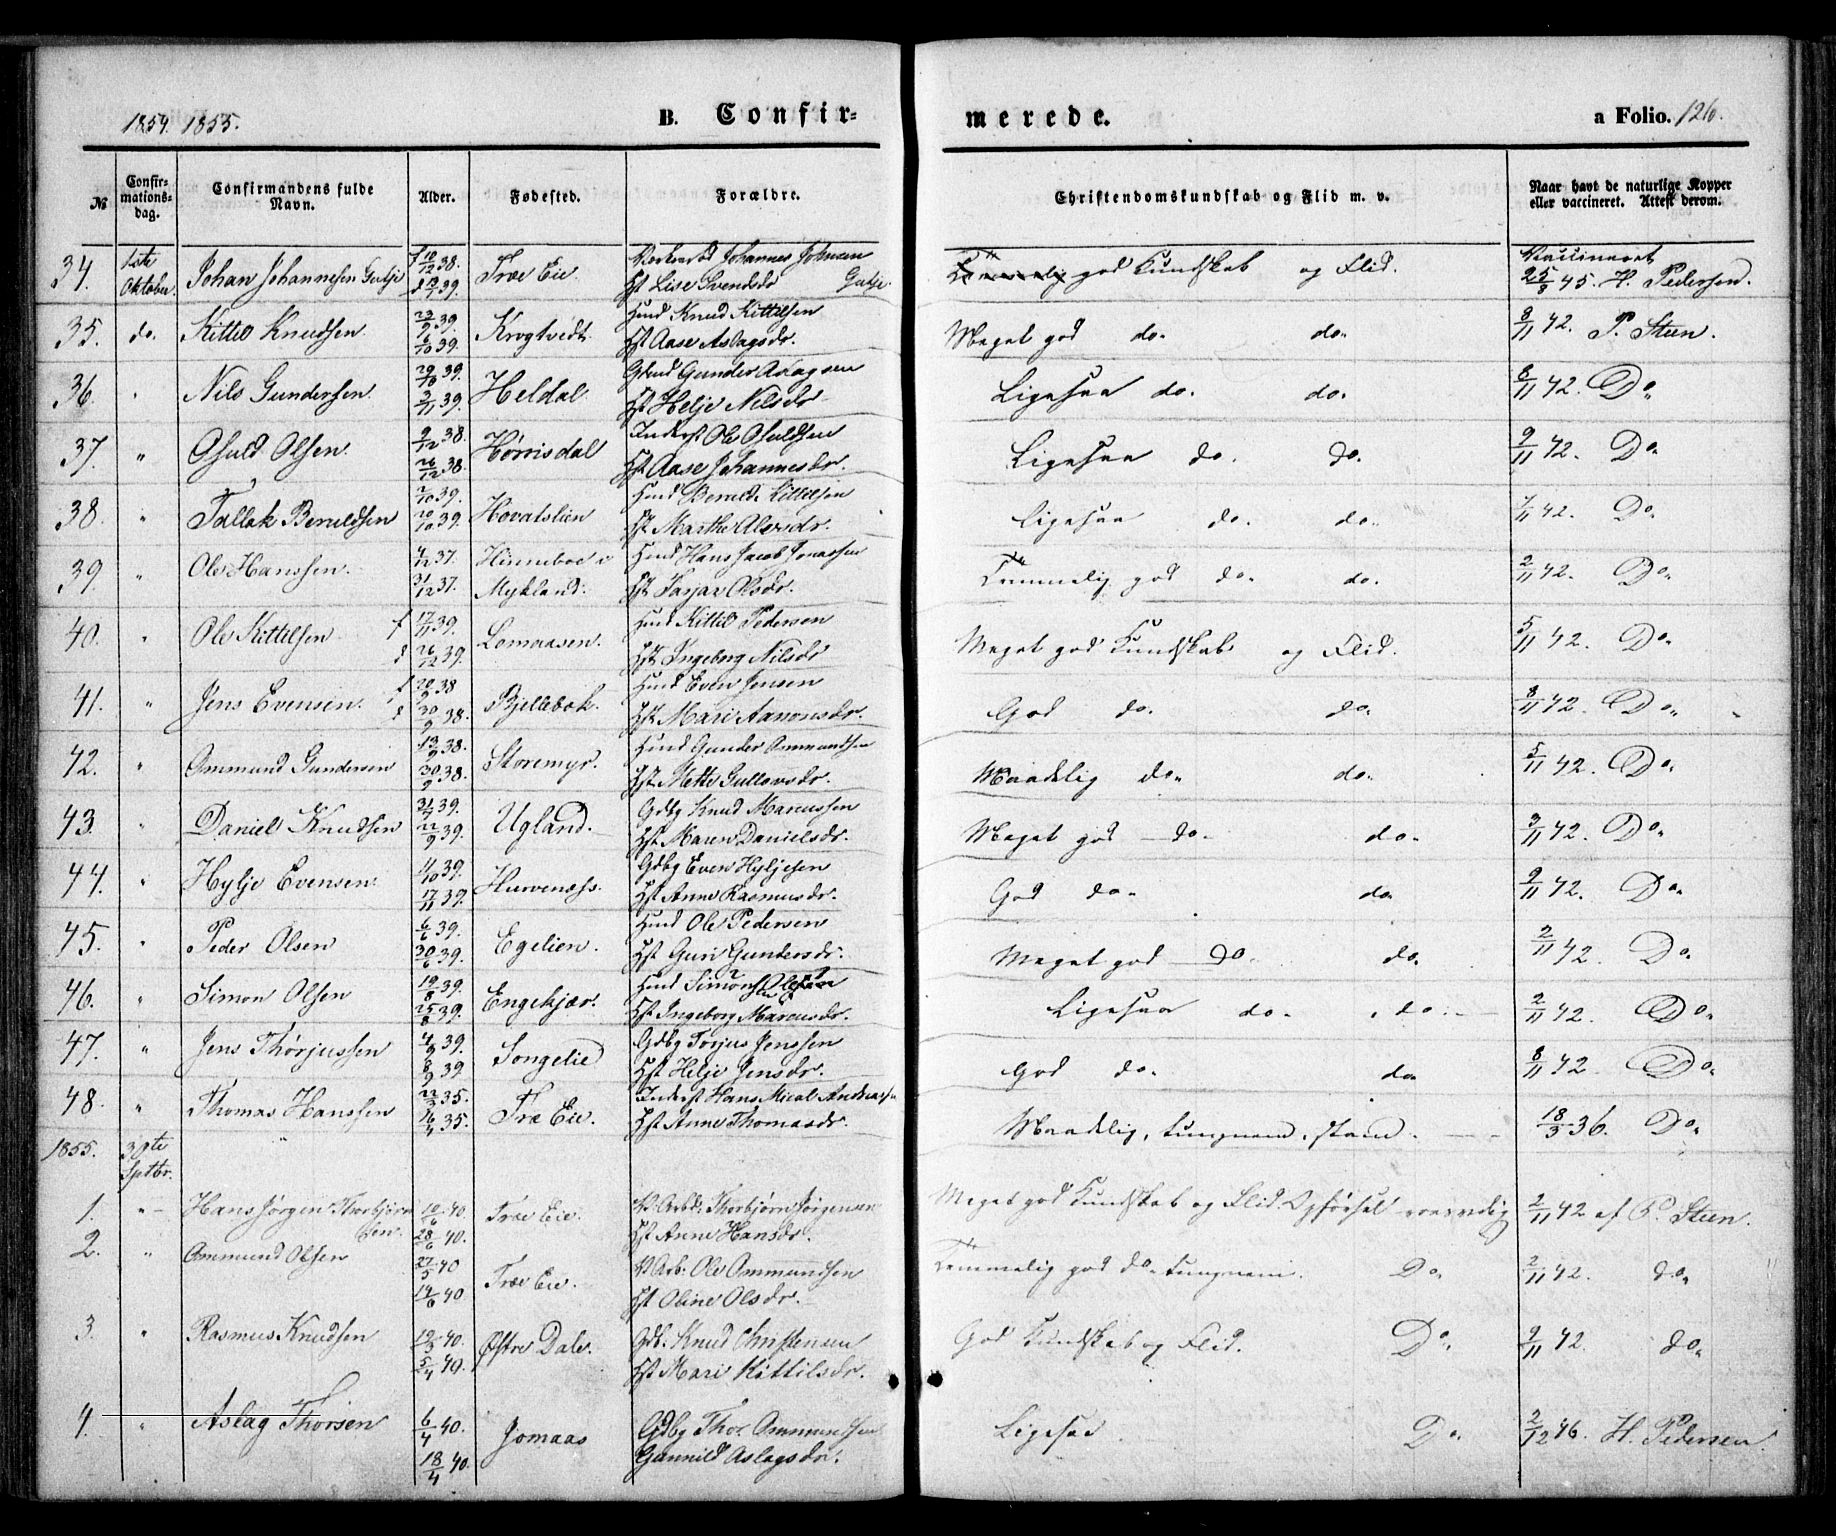 1854. 1855.
B. Confirmerede.
a Folio. 126.
№ Confirmationsdag. Confirmandens fulde Navn. Alder. Fødested. Forældre. Christendomskundskab og Flid m. v. Naar havt de naturlige Kopper eller vaccineret. Attest derom.
34. 1ste Oktober. Johan Johannesen Gutje f 10/12 38. d 12/1 39. Træ Eie Johannes Johnsen Gutje. Hst Lise Svendsdr god Kundskab og Flid. Vaccineret 25/8 45. H. Pedersen.
35. do. Kittel Knudsen 23/9 39. 6/10 39. Krogtvedt. Hmd Knud Kittilsen Hst Aase Aslagsdr. Meget god do. do. 8/11 42. P. Steen.
36. " Nils Gundersen 29/10 39. 3/11 39. Heldal Gunder Aslagsen Hst Helje Nilsdr Ligesaa do. do. 8/11 42. Do
37. " Osuld Olsen 9/12 38. 26/12 38. Hørrisdal Inderst Ole Osuldsen Hst Aase Johannesdr. Ligesaa do. do. 9/11 42. Do
38. " Tallak Beruldsen 2/10 39. 20/10 39. Hovatslien Hmd Beruld Kittilsen Hst Marthe Alersdr. Ligesaa do. do. 7/11 42. Do
39. " Ole Hanssen. 4/12 37. 31/12 37. Hinnebae i Mykland. Hmd Hans Jacob Jonassen Hst Tarjar Olsdr. Temmelig god do. do. 2/11 42. Do
40. " Ole Kittilsen f 17/11 39. d 26/12 39. Lomaasen. Hmd Kittil Pedersen Hst Ingeborg Nilsdr Meget god Kundskab og Flid. 5/11 42. Do
41. " Jens Evensen. f 20/9 38 d 30/9 38. Bjellebæk. Hmd Even Jensen Hst Mari Aanonsdr. God do. do. 8/11 42. Do
42. " Ommund Gundersen 13/9 38. 30/9 38. Storemyr. Hmd Gunder Ommundsen Hst Mette Gullovsdr. Maadelig do. do. 5/11 42. Do
43. " Daniel Knudsen 31/7 39. 22/9 39. Ugland. Gdbg Knud Marcussen Hst Maren Danielsdr. Meget god do. do. 3/11 42. Do
44. " Hylje Evensen. 4/10 39. 17/11 39. Hurvenæs. Gdbg Even Hyljesen Hst Anne Rasmusdr. God do. do. 9/11 42. Do
45. " Peder Olsen 6/6 39. 30/6 39. Egelien. Hmd Ole Pedersen Hst Guri Gundersdr. Meget god do. do. 2/11 42. Do
46. " Simon Olsen 19/8 39. 25/8 39. Engekjær. Hmd Simon Olsen Hst Ingeborg Marcusdr. Ligesaa do. do. 2/11 42. Do
47. " Jens Thorjussen 4/9 39. 8/9 39 Songelie Gdbg Torjus Jenssen Hst Helje Jensdr. God do. do 8/11 42. Do
48. " Thomas Hanssen 22/3 35. 16/4 35. Træ Eie. Inderst Hans Mical Andreas Hst Anne Thomasdr. Maadelig, tungnem, 18/3 36. Do
1855. 30te Sptbr.
1. " Hans Jørgen Thorbjørnsen. 10/6 40 28/6 40. Træ Eie. Arbd. Thorbjørn Jørgensen Hst Anne Hansdr. Meget god Kundskab og Flid. Opførsel 2/11 42 af P. Steen.
2. " Ommund Olsen 27/5 40 14/6 40 Træ Eie. Arb. Ole Ommundsen Hst Oline Olsdr. Temmelig god do tungnem. Do. 2/11 42. do.
3. " Rasmus Knudsen 12/3 40. 5/4 40. Østre Dale. Gdb. Knud Christensen Hst Mari Kittilsdr. God Kundskab og Flid. Do. 9/11 42. do.
4. " Aslag Thorsen 6/4 40. 18/4 40. Jomaas Gdbg Thor Ommundsen Gunnild Aslagsdr. Ligesaa Do 2/12 46. H. Pedersen.